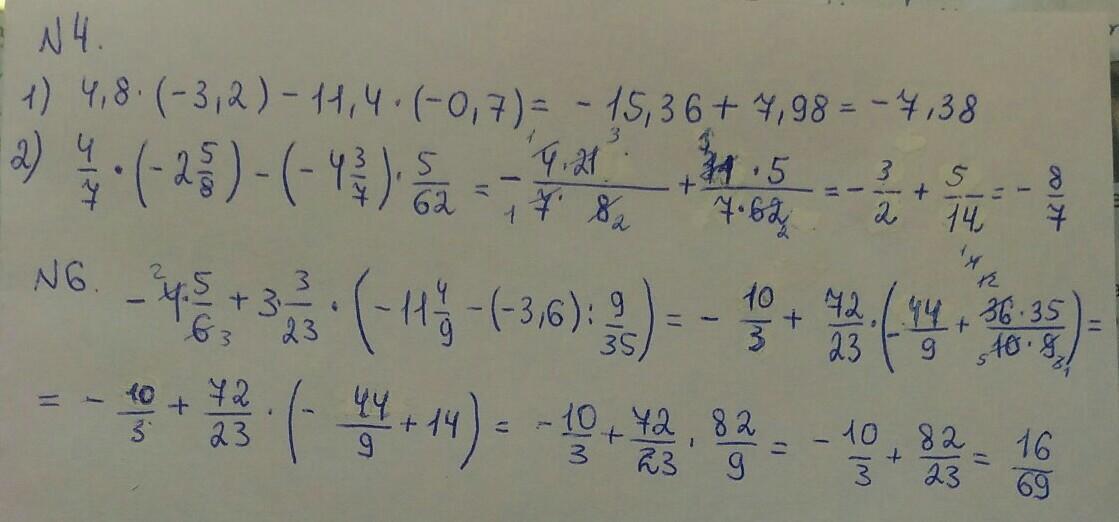 N4.
1) 4,8 · (-3,2) - 11,4 · (-0,7) = -15,36 + 7,98 = -7,38
2) 4/7 · (-2 5/8) - (-4 3/7) · 5/62 = - (4·21)/(7·8) + (31·5)/(7·62) = - 3/2 + 5/14 = - 8/7
N6. - 4·5/6 + 3·3/23 · (-11 4/9 - (-3,6) : 9/35) = - 10/3 + 72/23 · (- 44/9 + (36·35)/(10·9)) =
= - 10/3 + 72/23 · (- 44/9 + 14) = - 10/3 + 72/23 · 82/9 = - 10/3 + 82/23 = 16/69